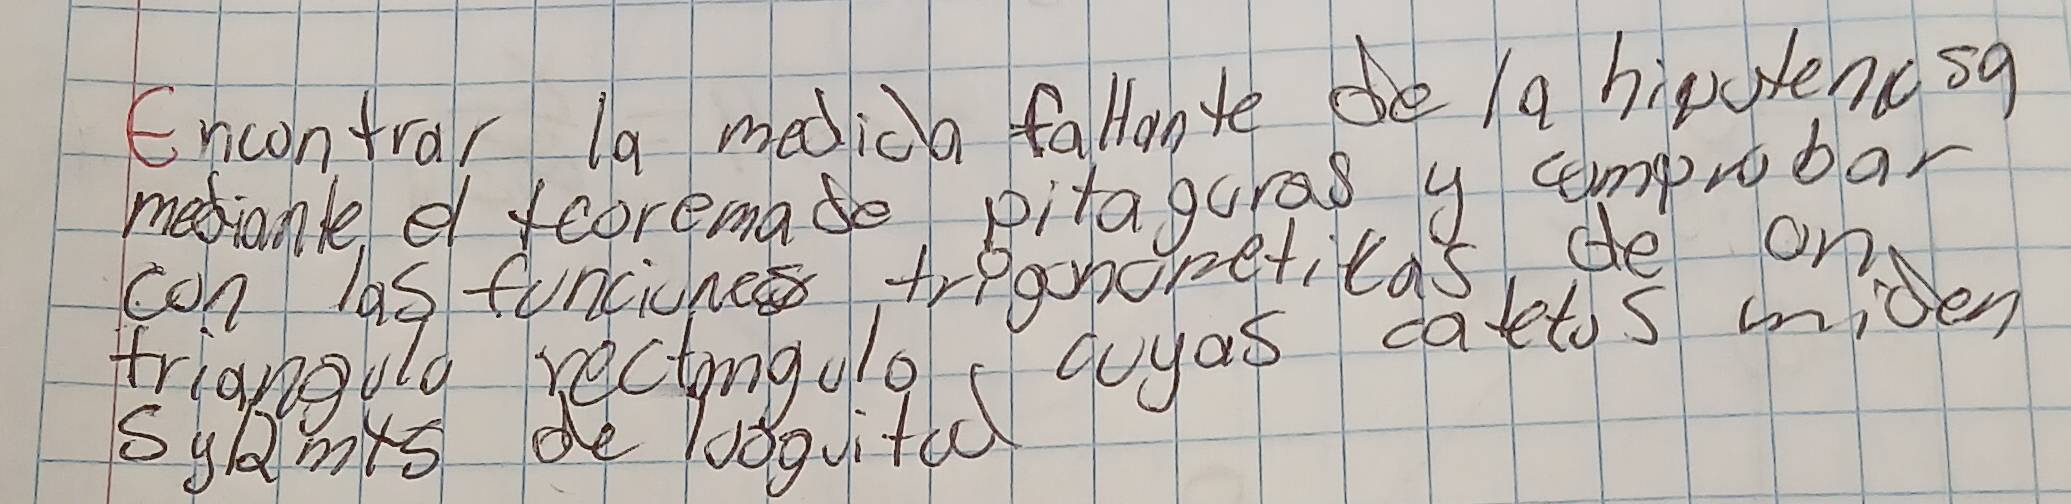 Encontrar la medida faltante de la hipotenusa
mediante el teorema de pitagoras y comprobar
con las funciones trigonometricas de un
triangulo rectangulo cuyas catetos miden
5 y 12 mts de longuitud